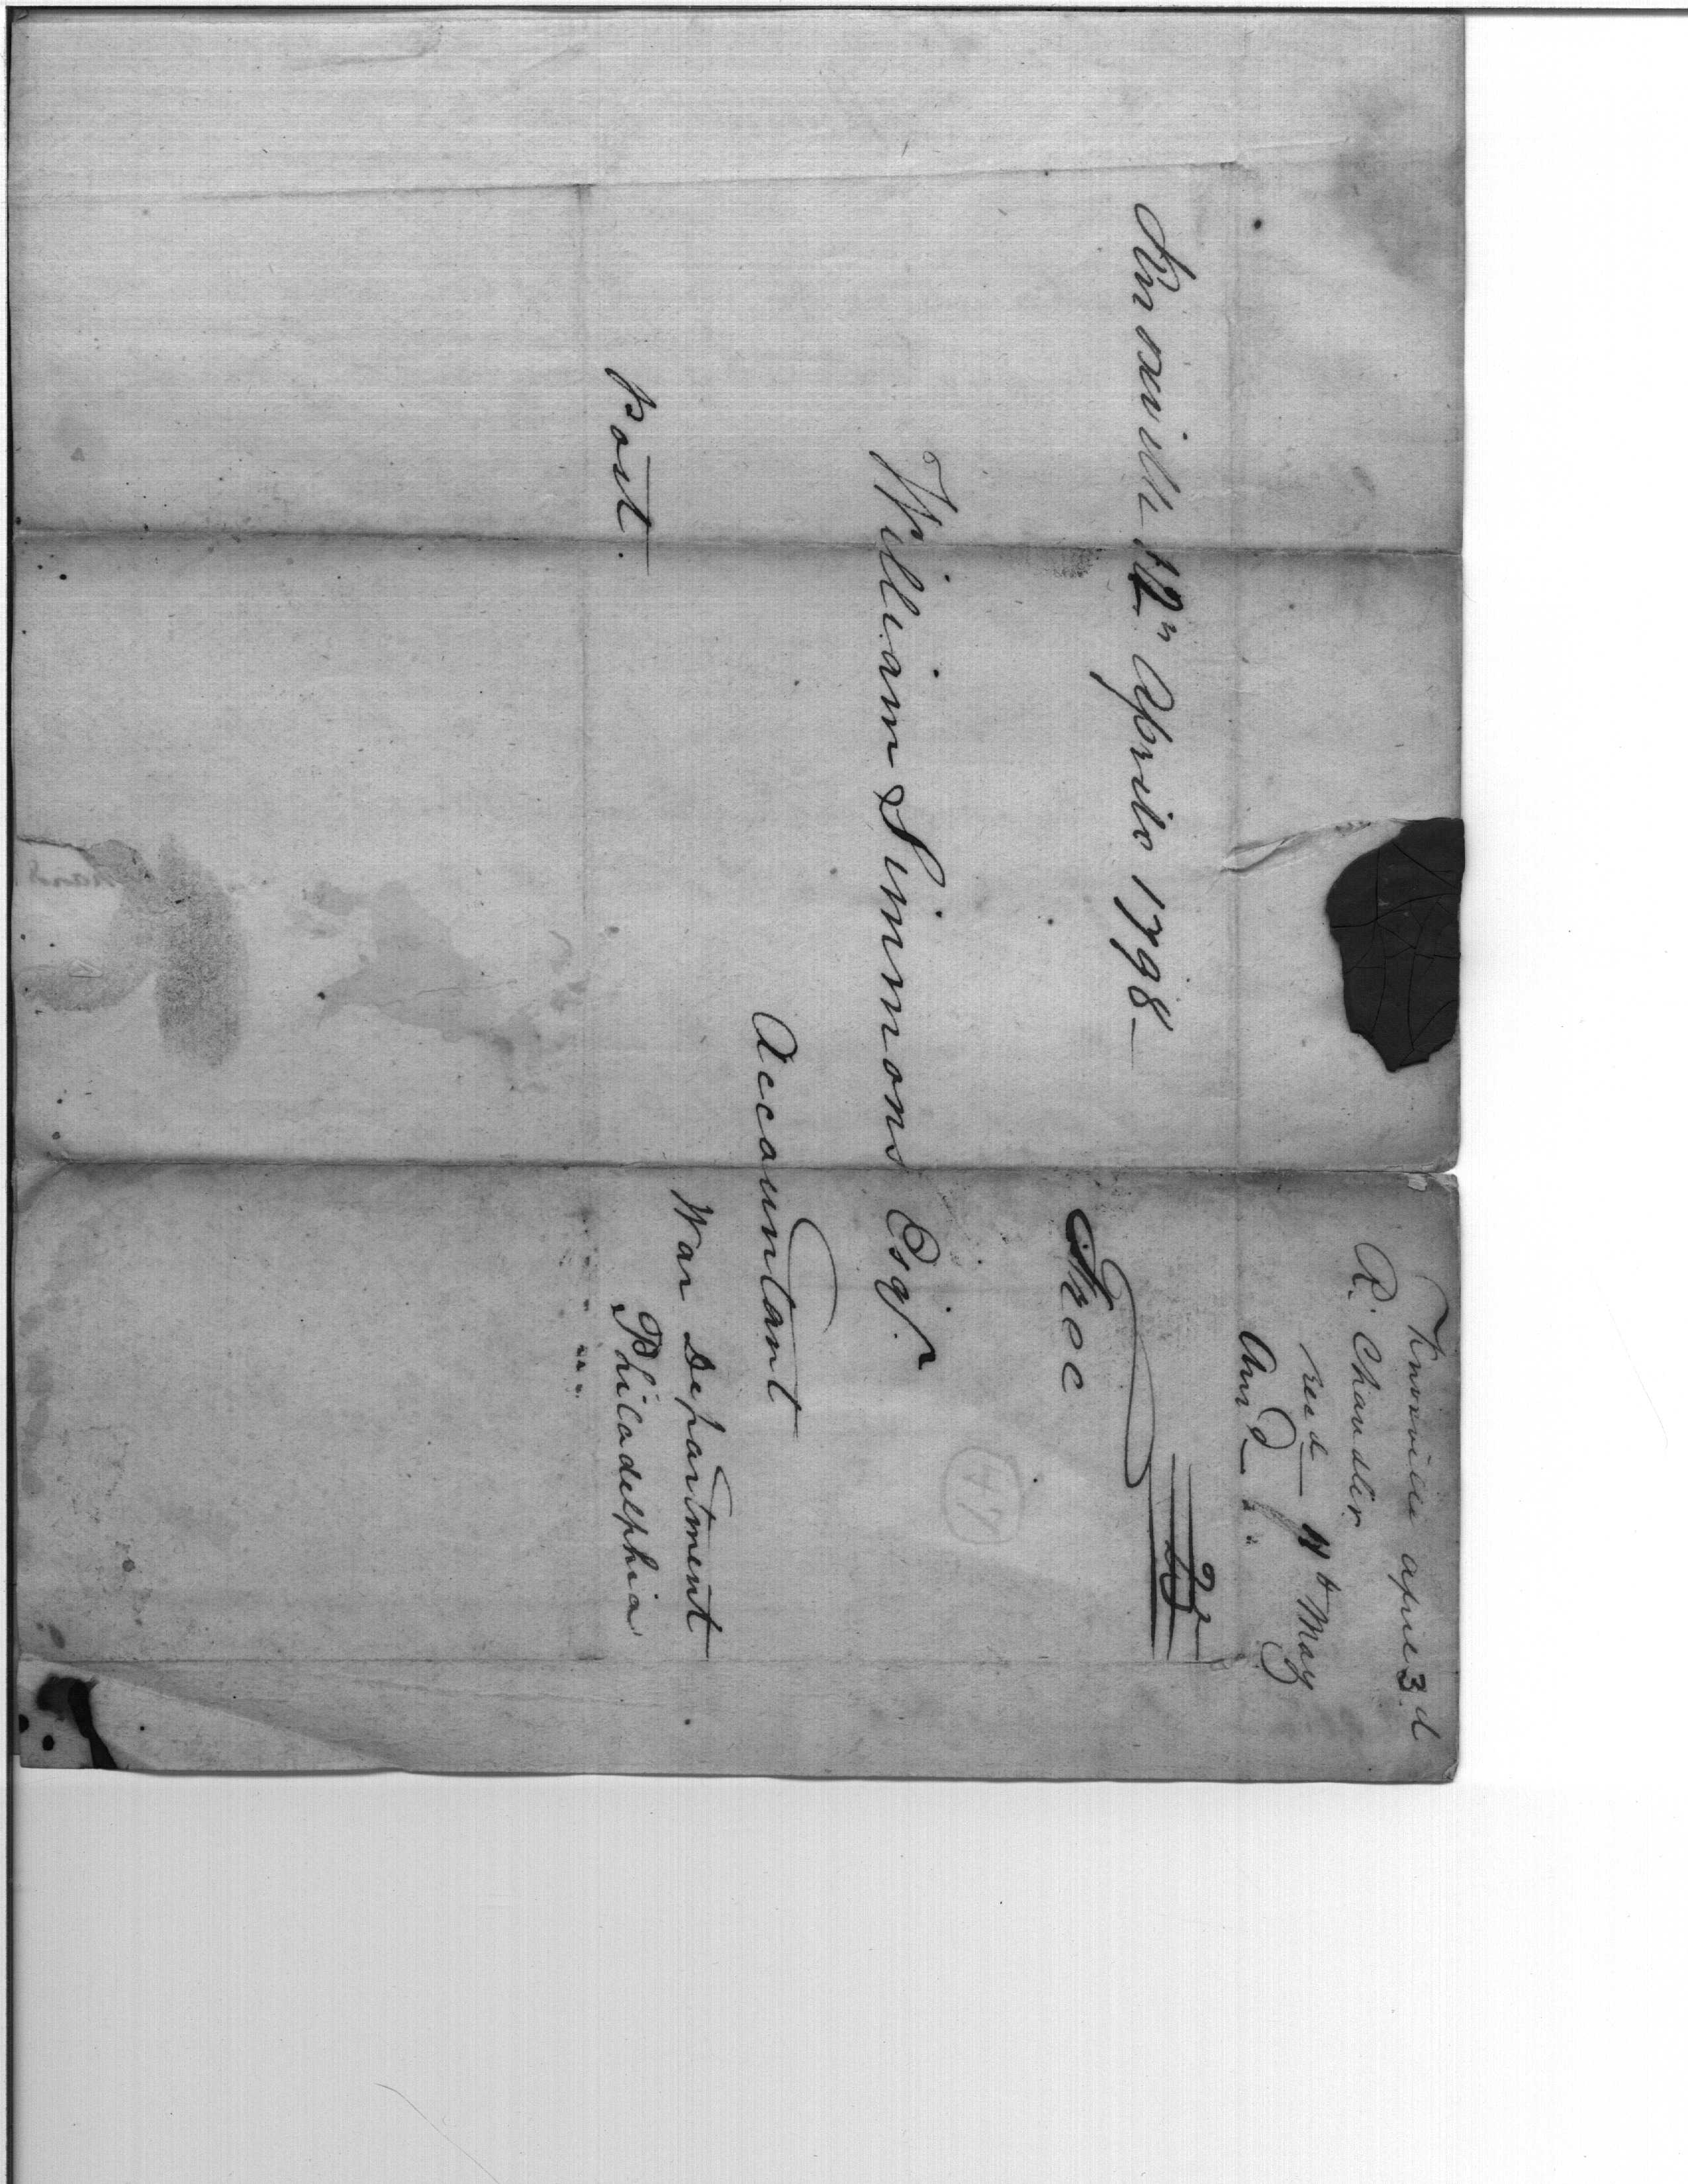 Knoxville april 3d
R. Chandler
recd 11th May
Ansd
Knoxville 12th April 1798
Free
25
William Simmons Esqr.
Accountant
War Department
Philadelphia
post.